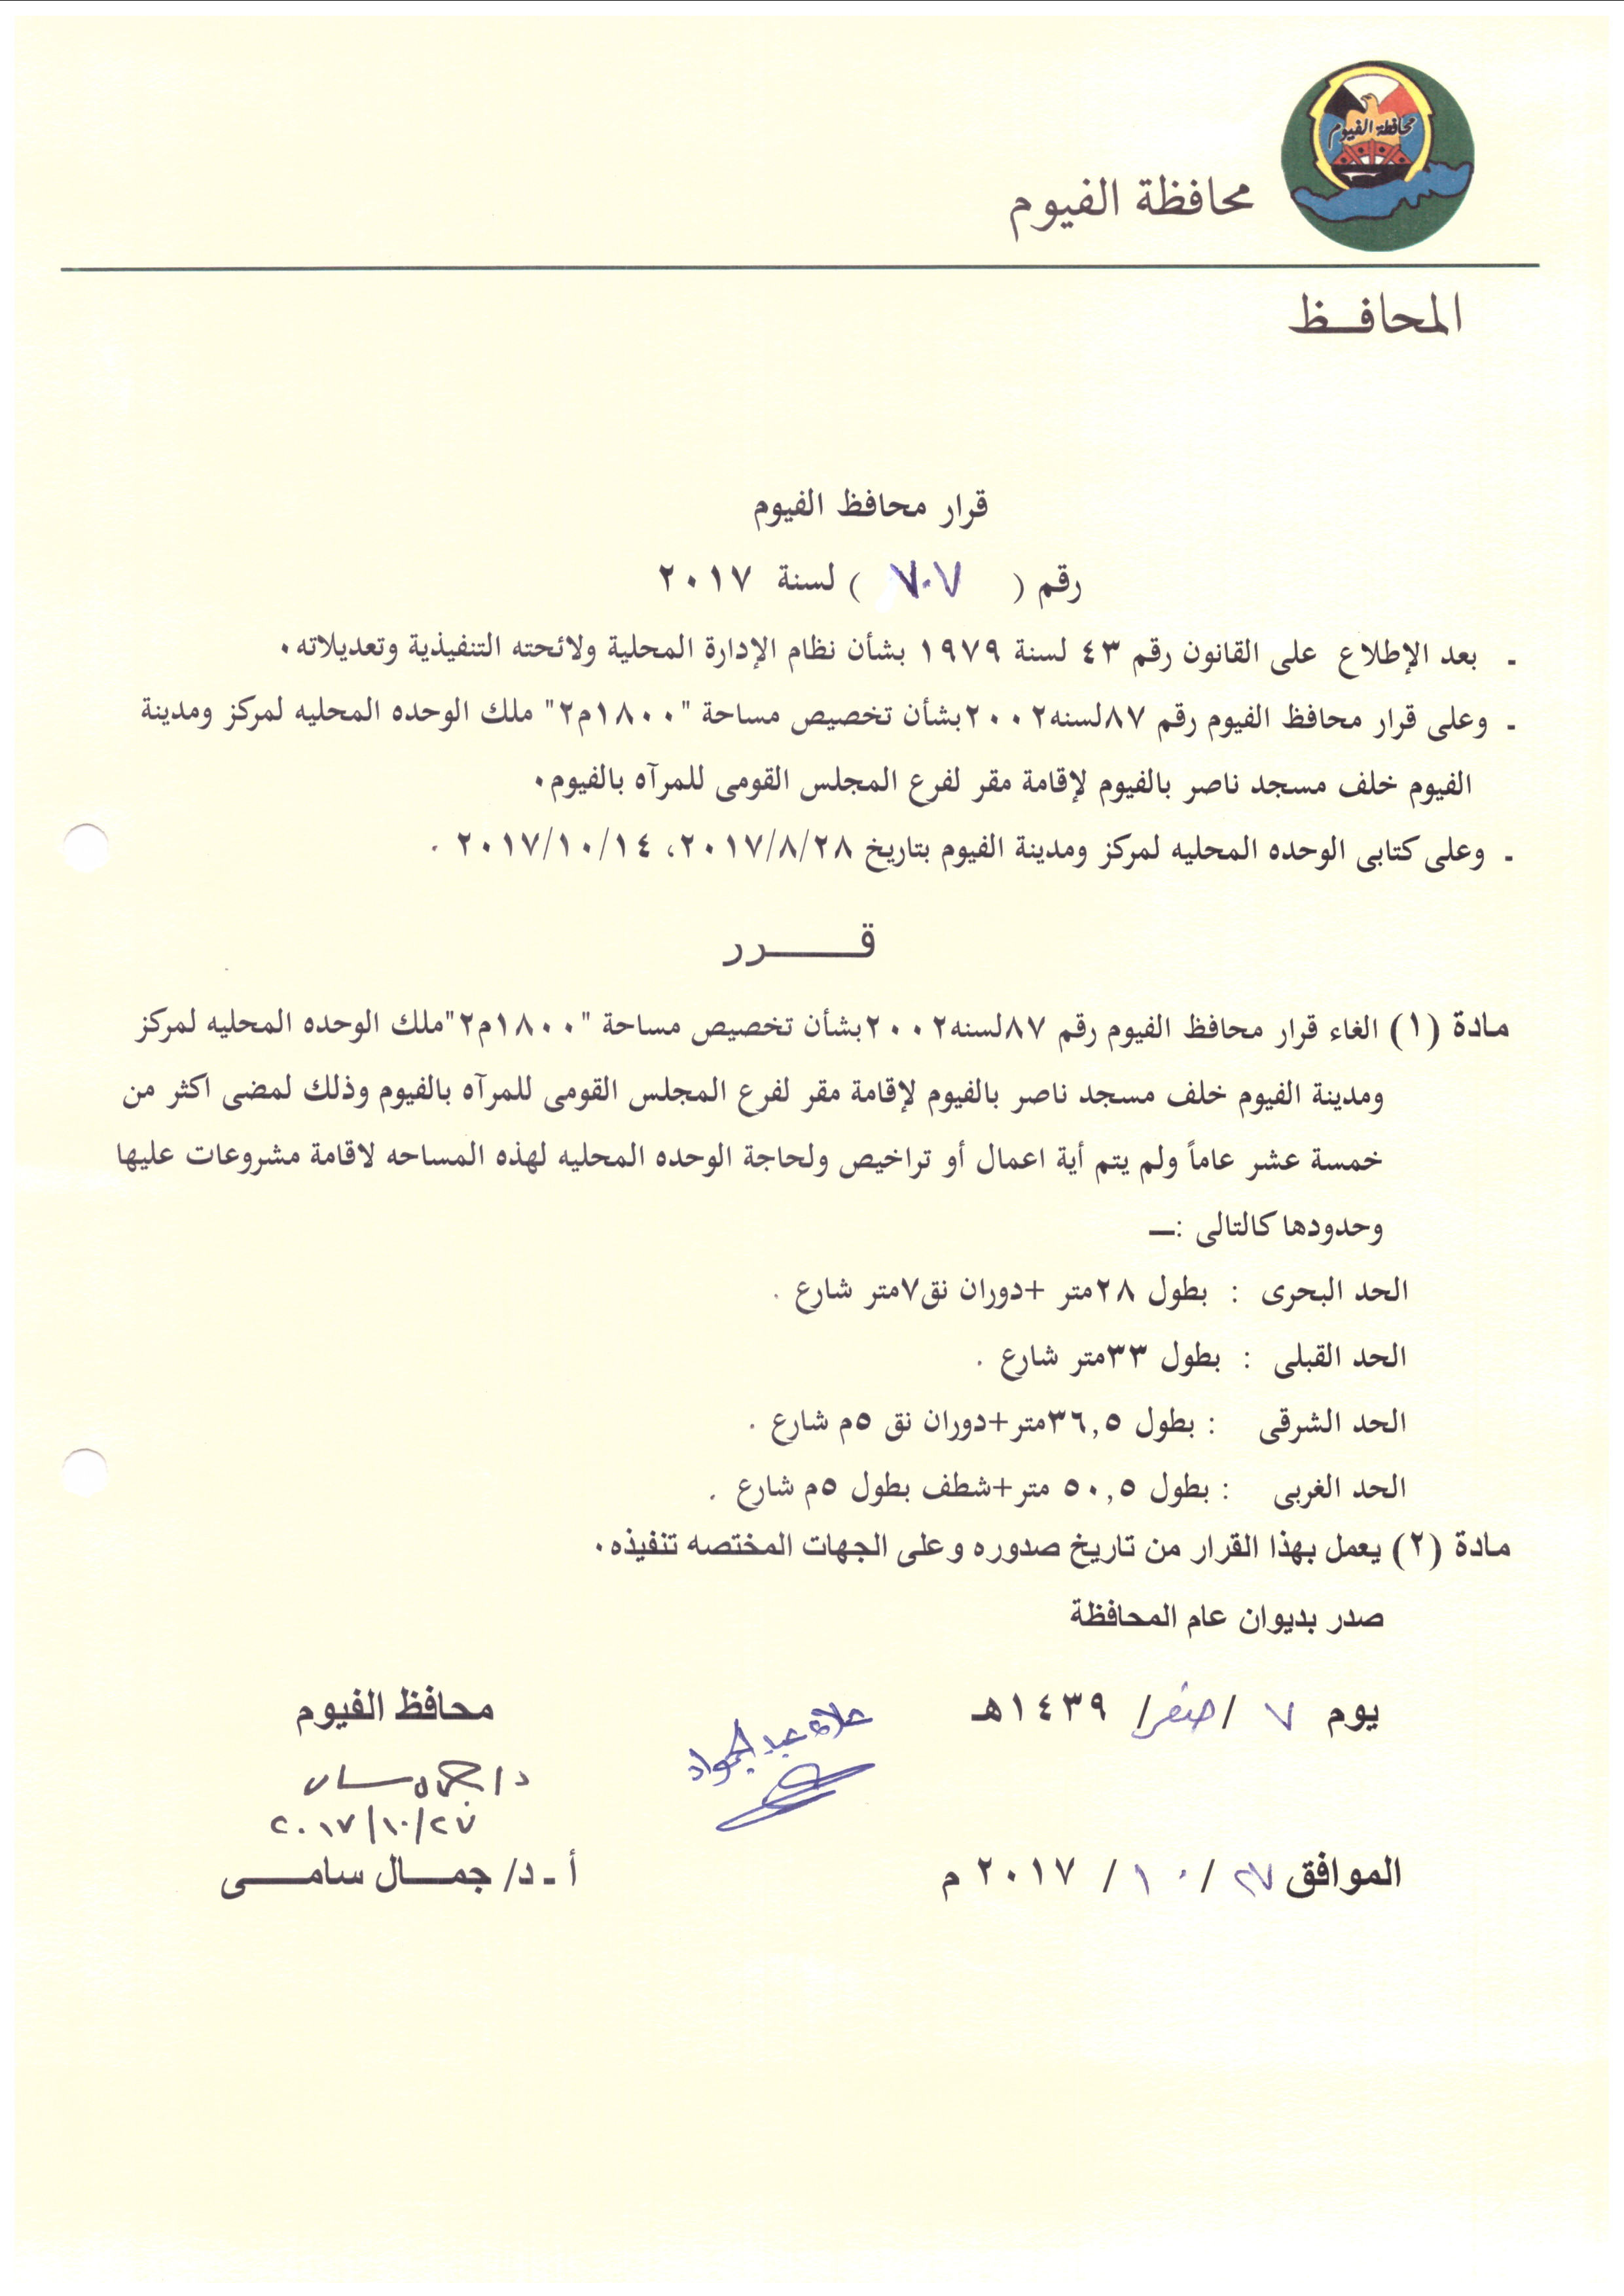 محافظة الفيوم
محافظة الفيوم
المحافـــظ
قرار محافظ الفيوم
رقم ( ٧٠٧ ) لسنة ٢٠١٧
ـ بعد الإطلاع على القانون رقم ٤٣ لسنة ١٩٧٩ بشأن نظام الإدارة المحلية ولائحته التنفيذية وتعديلاته٠
ـ وعلى قرار محافظ الفيوم رقم ٨٧لسنه٢٠٠٢بشأن تخصيص مساحة "١٨٠٠م٢" ملك الوحده المحليه لمركز ومدينة
الفيوم خلف مسجد ناصر بالفيوم لإقامة مقر لفرع المجلس القومى للمرآه بالفيوم٠
ـ وعلى كتابى الوحده المحليه لمركز ومدينة الفيوم بتاريخ ٢٠١٧/٨/٢٨، ٢٠١٧/١٠/١٤ .
قـــــــرر
مادة (١) الغاء قرار محافظ الفيوم رقم ٨٧لسنه٢٠٠٢بشأن تخصيص مساحة "١٨٠٠م٢"ملك الوحده المحليه لمركز
ومدينة الفيوم خلف مسجد ناصر بالفيوم لإقامة مقر لفرع المجلس القومى للمرآه بالفيوم وذلك لمضى اكثر من
خمسة عشر عاماً ولم يتم أية اعمال أو تراخيص ولحاجة الوحده المحليه لهذه المساحه لاقامة مشروعات عليها
وحدودها كالتالى :ــ
الحد البحرى : بطول ٢٨متر +دوران نق٧متر شارع .
الحد القبلى : بطول ٣٣متر شارع .
الحد الشرقى : بطول ٣٦,٥متر+دوران نق ٥م شارع .
الحد الغربى : بطول ٥٠,٥ متر+شطف بطول ٥م شارع .
مادة (٢) يعمل بهذا القرار من تاريخ صدوره وعلى الجهات المختصه تنفيذه٠
صدر بديوان عام المحافظة
يوم ٧ /صفر/ ١٤٣٩هـ
الموافق ٢٧ / ١٠ / ٢٠١٧ م
علاء عبد الجواد
محافظ الفيوم
٢٠١٧/١٠/٢٧
أ ـ د/ جمـــال سامـــــى